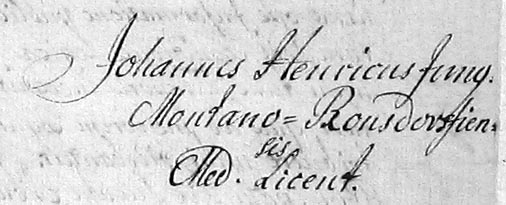 Johannes Henricus Jung.
Montano = Ronsdorffien=
sis
Med. Licent.